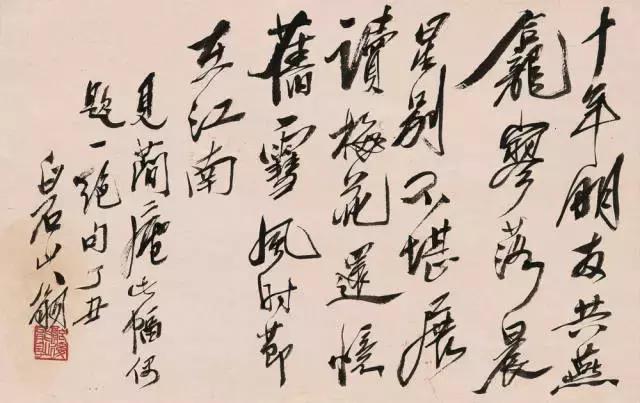 十年朋友共燕
龕寥落晨
星別不堪展
讀梅花還憶
舊雪風时節
在江南
見蕳庵此幅仍
題一絕句丁丑
白石山翁